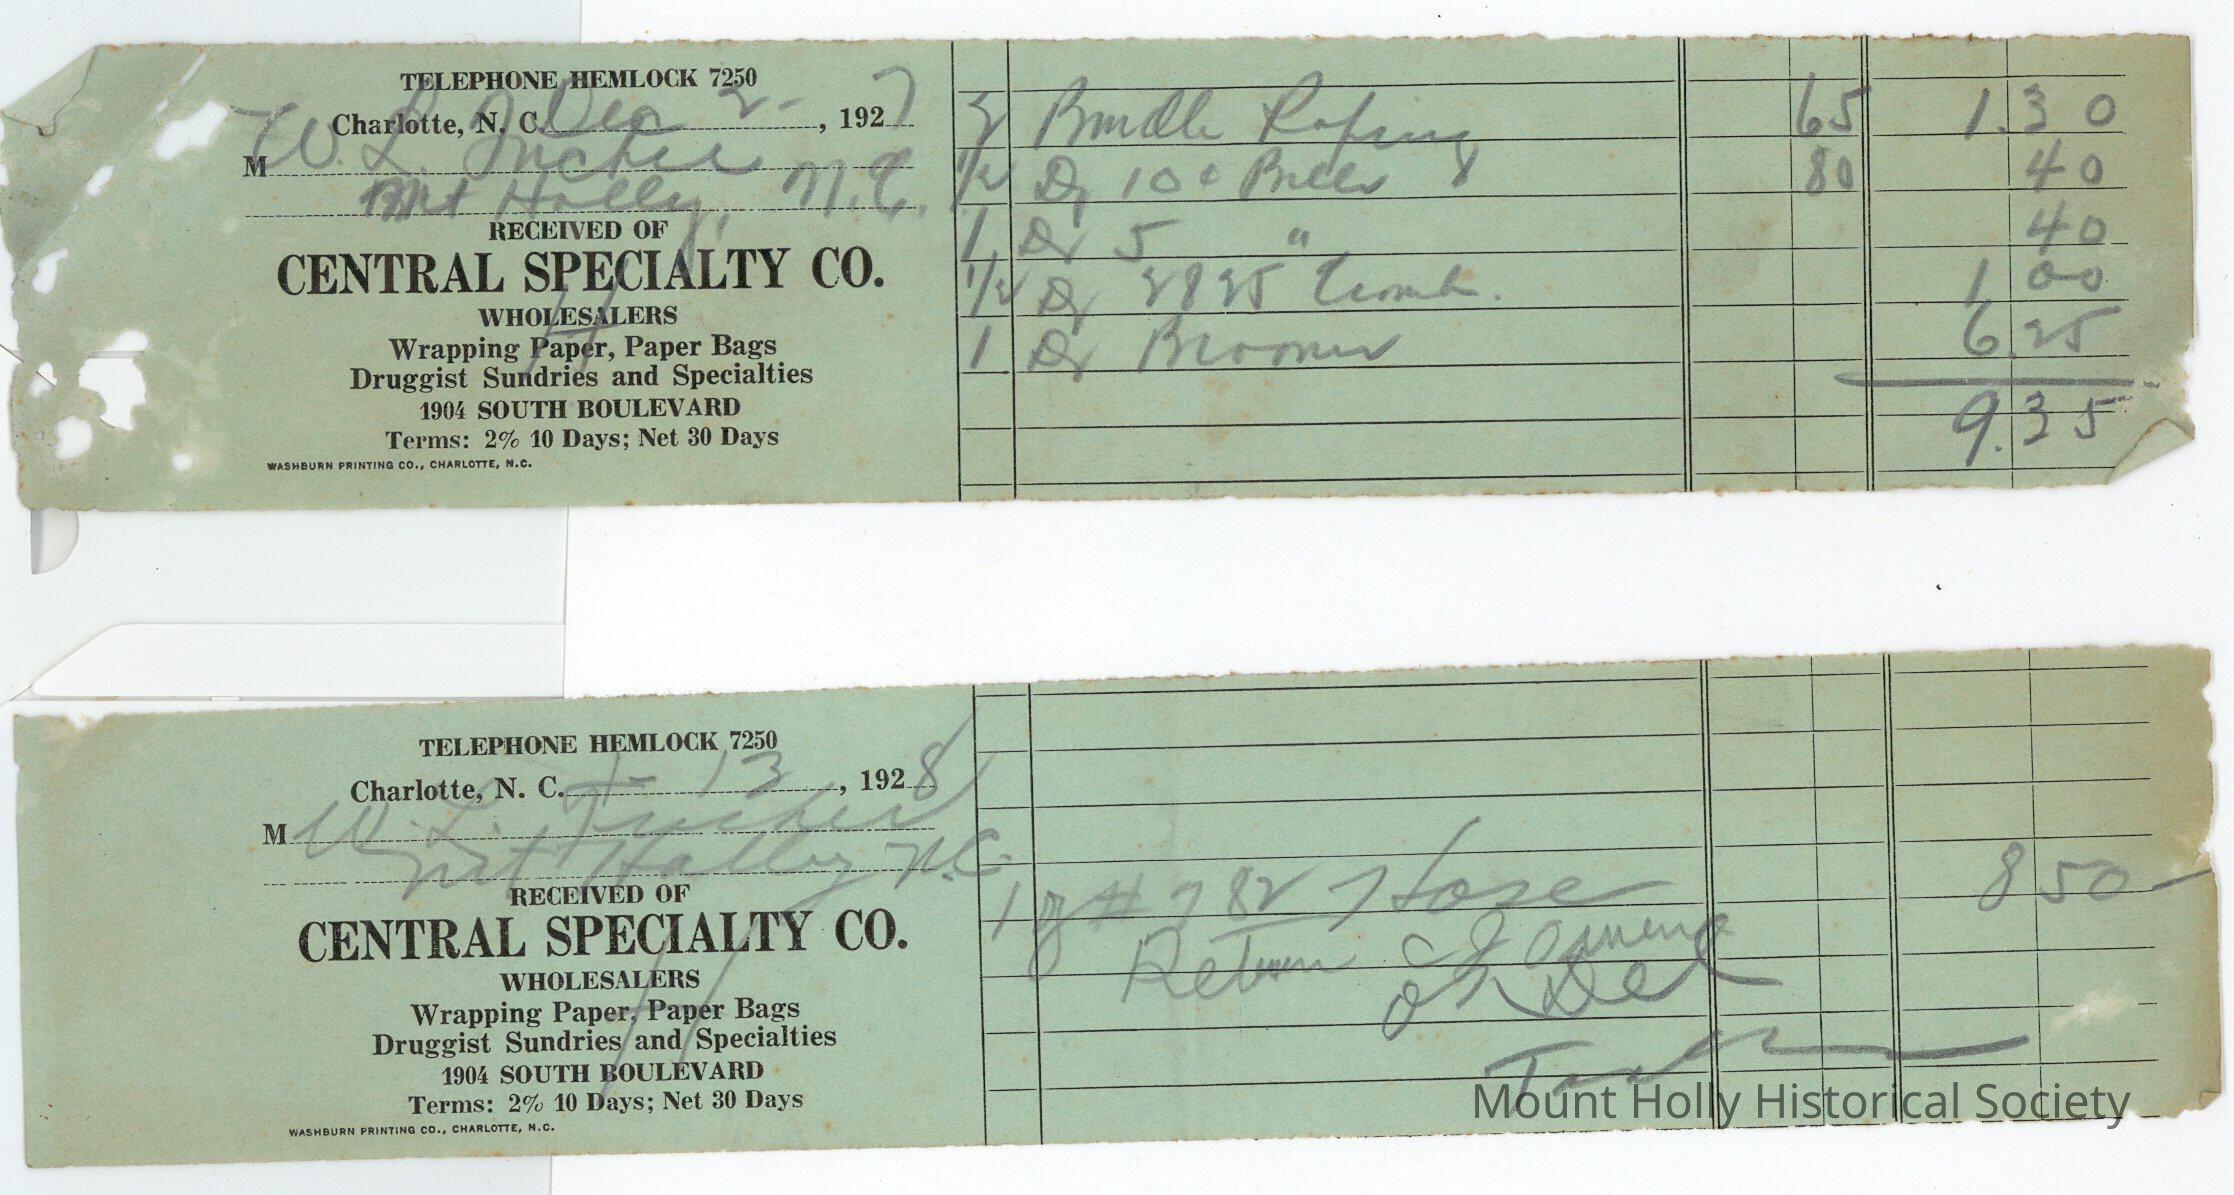 TELEPHONE HEMLOCK 7250
Charlotte, N. C. Dec 2 - , 1927
M W. L. Tucker
Mt Holly, N.C.
RECEIVED OF
CENTRAL SPECIALTY CO.
WHOLESALERS
Wrapping Paper, Paper Bags
Druggist Sundries and Specialties
1904 SOUTH BOULEVARD
Terms: 2% 10 Days; Net 30 Days
WASHBURN PRINTING CO., CHARLOTTE, N.C.
2 Bundle 65 1.30
1/2 Dz 10¢ 80 40
1 Dz 5 " 40
1/2 Dz Comb. 1 00
1 Dz Brooms 6.25
9.35
TELEPHONE HEMLOCK 7250
Charlotte, N. C. 13 , 1928
M W. L. Tucker
Mt Holly N.C.
RECEIVED OF
CENTRAL SPECIALTY CO.
WHOLESALERS
Wrapping Paper, Paper Bags
Druggist Sundries and Specialties
1904 SOUTH BOULEVARD
Terms: 2% 10 Days; Net 30 Days
WASHBURN PRINTING CO., CHARLOTTE, N.C.
1 # 782 Hose 8 50
Return
Mount Holly Historical Society